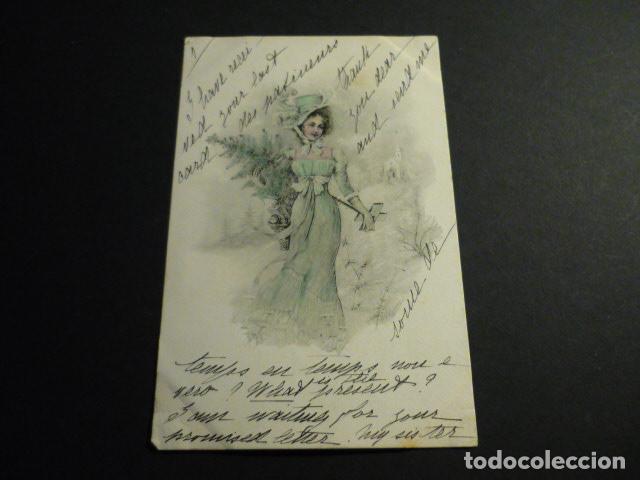 I have recei
ved your last
card des patineurs
thank
you dear
and send me
some de
temps en temps non e
vero ? What is the present ?
I am waiting for your
promised letter. My sister
todocoleccion.net